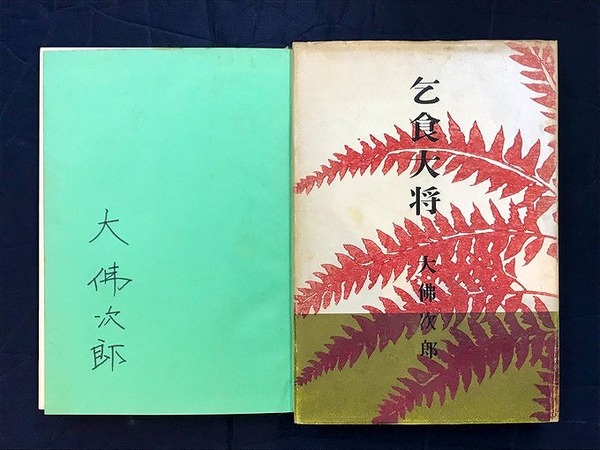 乞食大将
大佛次郎
大佛次郎